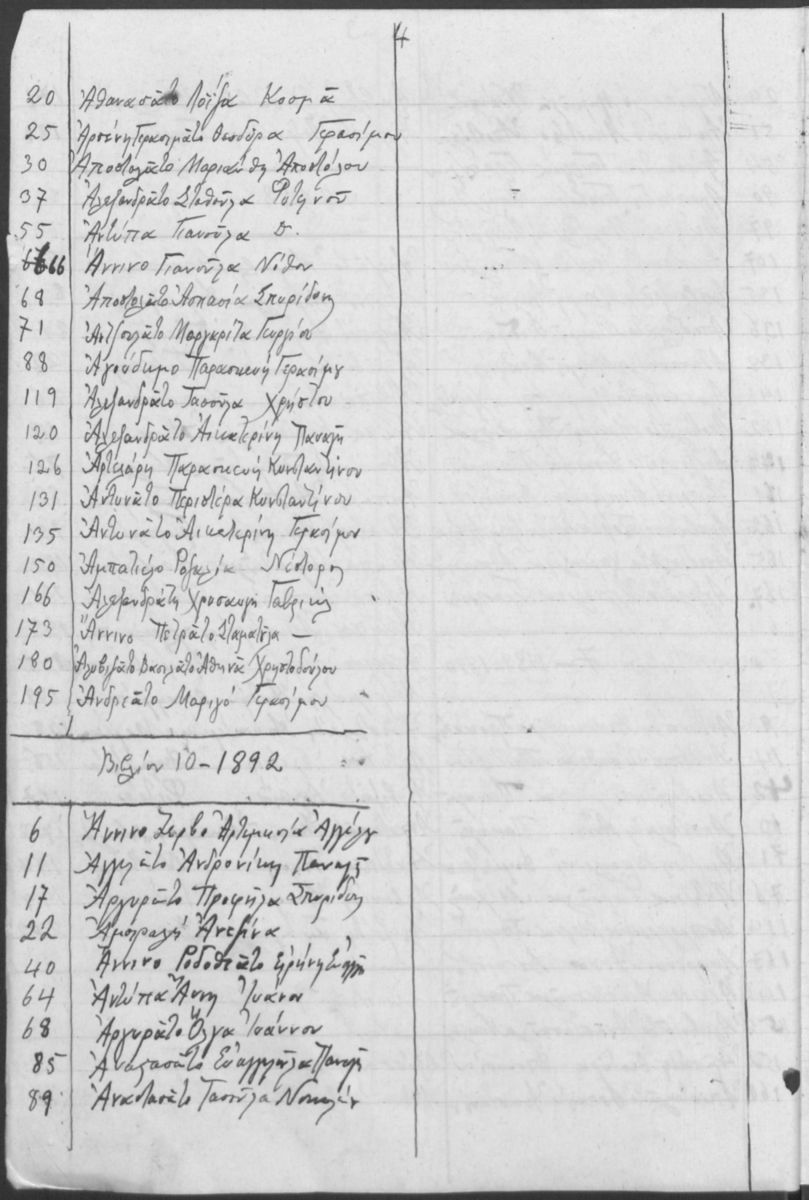 4
20 Ἀθανασᾶτο Λοΐζα Κοσμᾶ
25 Ἀρσένη Γερασιμᾶτο Θεοδώρα Γερασίμου
30 Ἀποστολᾶτο Μαριάνθη Ἀποστόλου
37 Ἀλεξανδρᾶτο Σταθοῦλα Φωτεινοῦ
55 Ἀντύπα Γιανοῦλα
66 Ἄννινο Γιανοῦλα
68 Ἀποστολᾶτο Ἀσπασία Σπυρίδων
71 Ἀντζουλᾶτο Μαργαρίτα Γεωργίου
88 Ἀγούδημο Παρασκευή Γερασίμου
119 Ἀλεξανδρᾶτο Τασοῦλα Χρήστου
120 Ἀλεξανδρᾶτο Αἰκατερίνη Παναγῆ
126 Ἀρτελάρη Παρασκευή Κωνσταντίνου
131 Ἀντωνᾶτο Περιστέρα Κωνσταντίνου
135 Ἀντωνᾶτο Αἰκατερίνη Γερασίμου
150 Ἀμπατιέλο Ροζαλία Νέστορος
166 Ἀλεξανδράτη Χρυσαυγή Γαβριήλ
173 Ἄννινο Πετρᾶτο Σταματῆλα —
180 Βασιλᾶτο Ἀθηνᾶ Χριστοδούλου
195 Ἀνδρεᾶτο Μαριγό Γερασίμου
Βιβλίον 10 - 1892
6 Ἄννινο Ζερβό Ἀρτεμισία Ἀγγέλου
11 Ἀγγελᾶτο Ἀνδρονίκη Παναγῆ
17 Ἀργυρᾶτο Προφήλα Σπυρίδων
22 Ἀμοιραλῆ Ἀνεζίνα
40 Ἄννινο Ροδοθεᾶτο Εἰρήνη
64 Ἀντύπα Ἄννη Ἰωάνου
68 Ἀργυρᾶτο Ὄλγα Ἰωάννου
85 Ἀναστασᾶτο Εὐαγγελῆλα Παναγῆ
89 Ἀναστασᾶτο Τασοῦλα